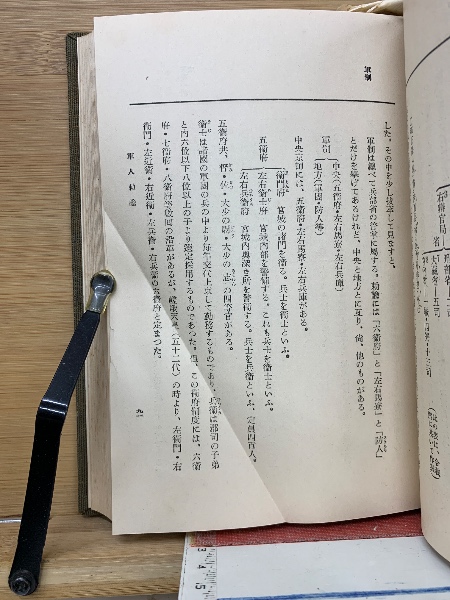 軍制
した。その中を少し抜萃して見ますと、
軍制は總べて兵部省の管掌に屬する。類纂には「六衛府」と「左右馬寮」と「防人」
とだけを擧げてあるけれど、中央と地方とに亙り、尚、他のものがある。
軍制
中央(五衛府・左右馬寮・左右兵庫)
地方(軍團・防人等)
中央官制には、五衛府・左右馬寮・左右兵庫がある。
五衛府
衛門府 宮城の諸門を衛る。兵士を衛士といふ。
左右衛士府 宮城内部を警備する。これも兵士を衛士といふ。
左右兵衛府 宮城内奥深き所を警備する。兵士を兵衛といふ。定員四百人。
五衛府共、督・佐・大少の尉・大少の志の四等官がある。
衛士は諸國の軍團の兵の中より毎年交代上京して勤務するものであり、兵衛は郡司の子弟
と内六位以下八位以上の子より鑑定採用するものであつた。この衛府制度には、六衛
府・七衛府・八衛府等數回の沿革があるが、嵯峨天皇(五十二代)の時より、左衛門・右
衛門・左近衛・右近衛・左兵衛・右兵衛の六衛府と定まつた。
軍人
九一
3
4
5